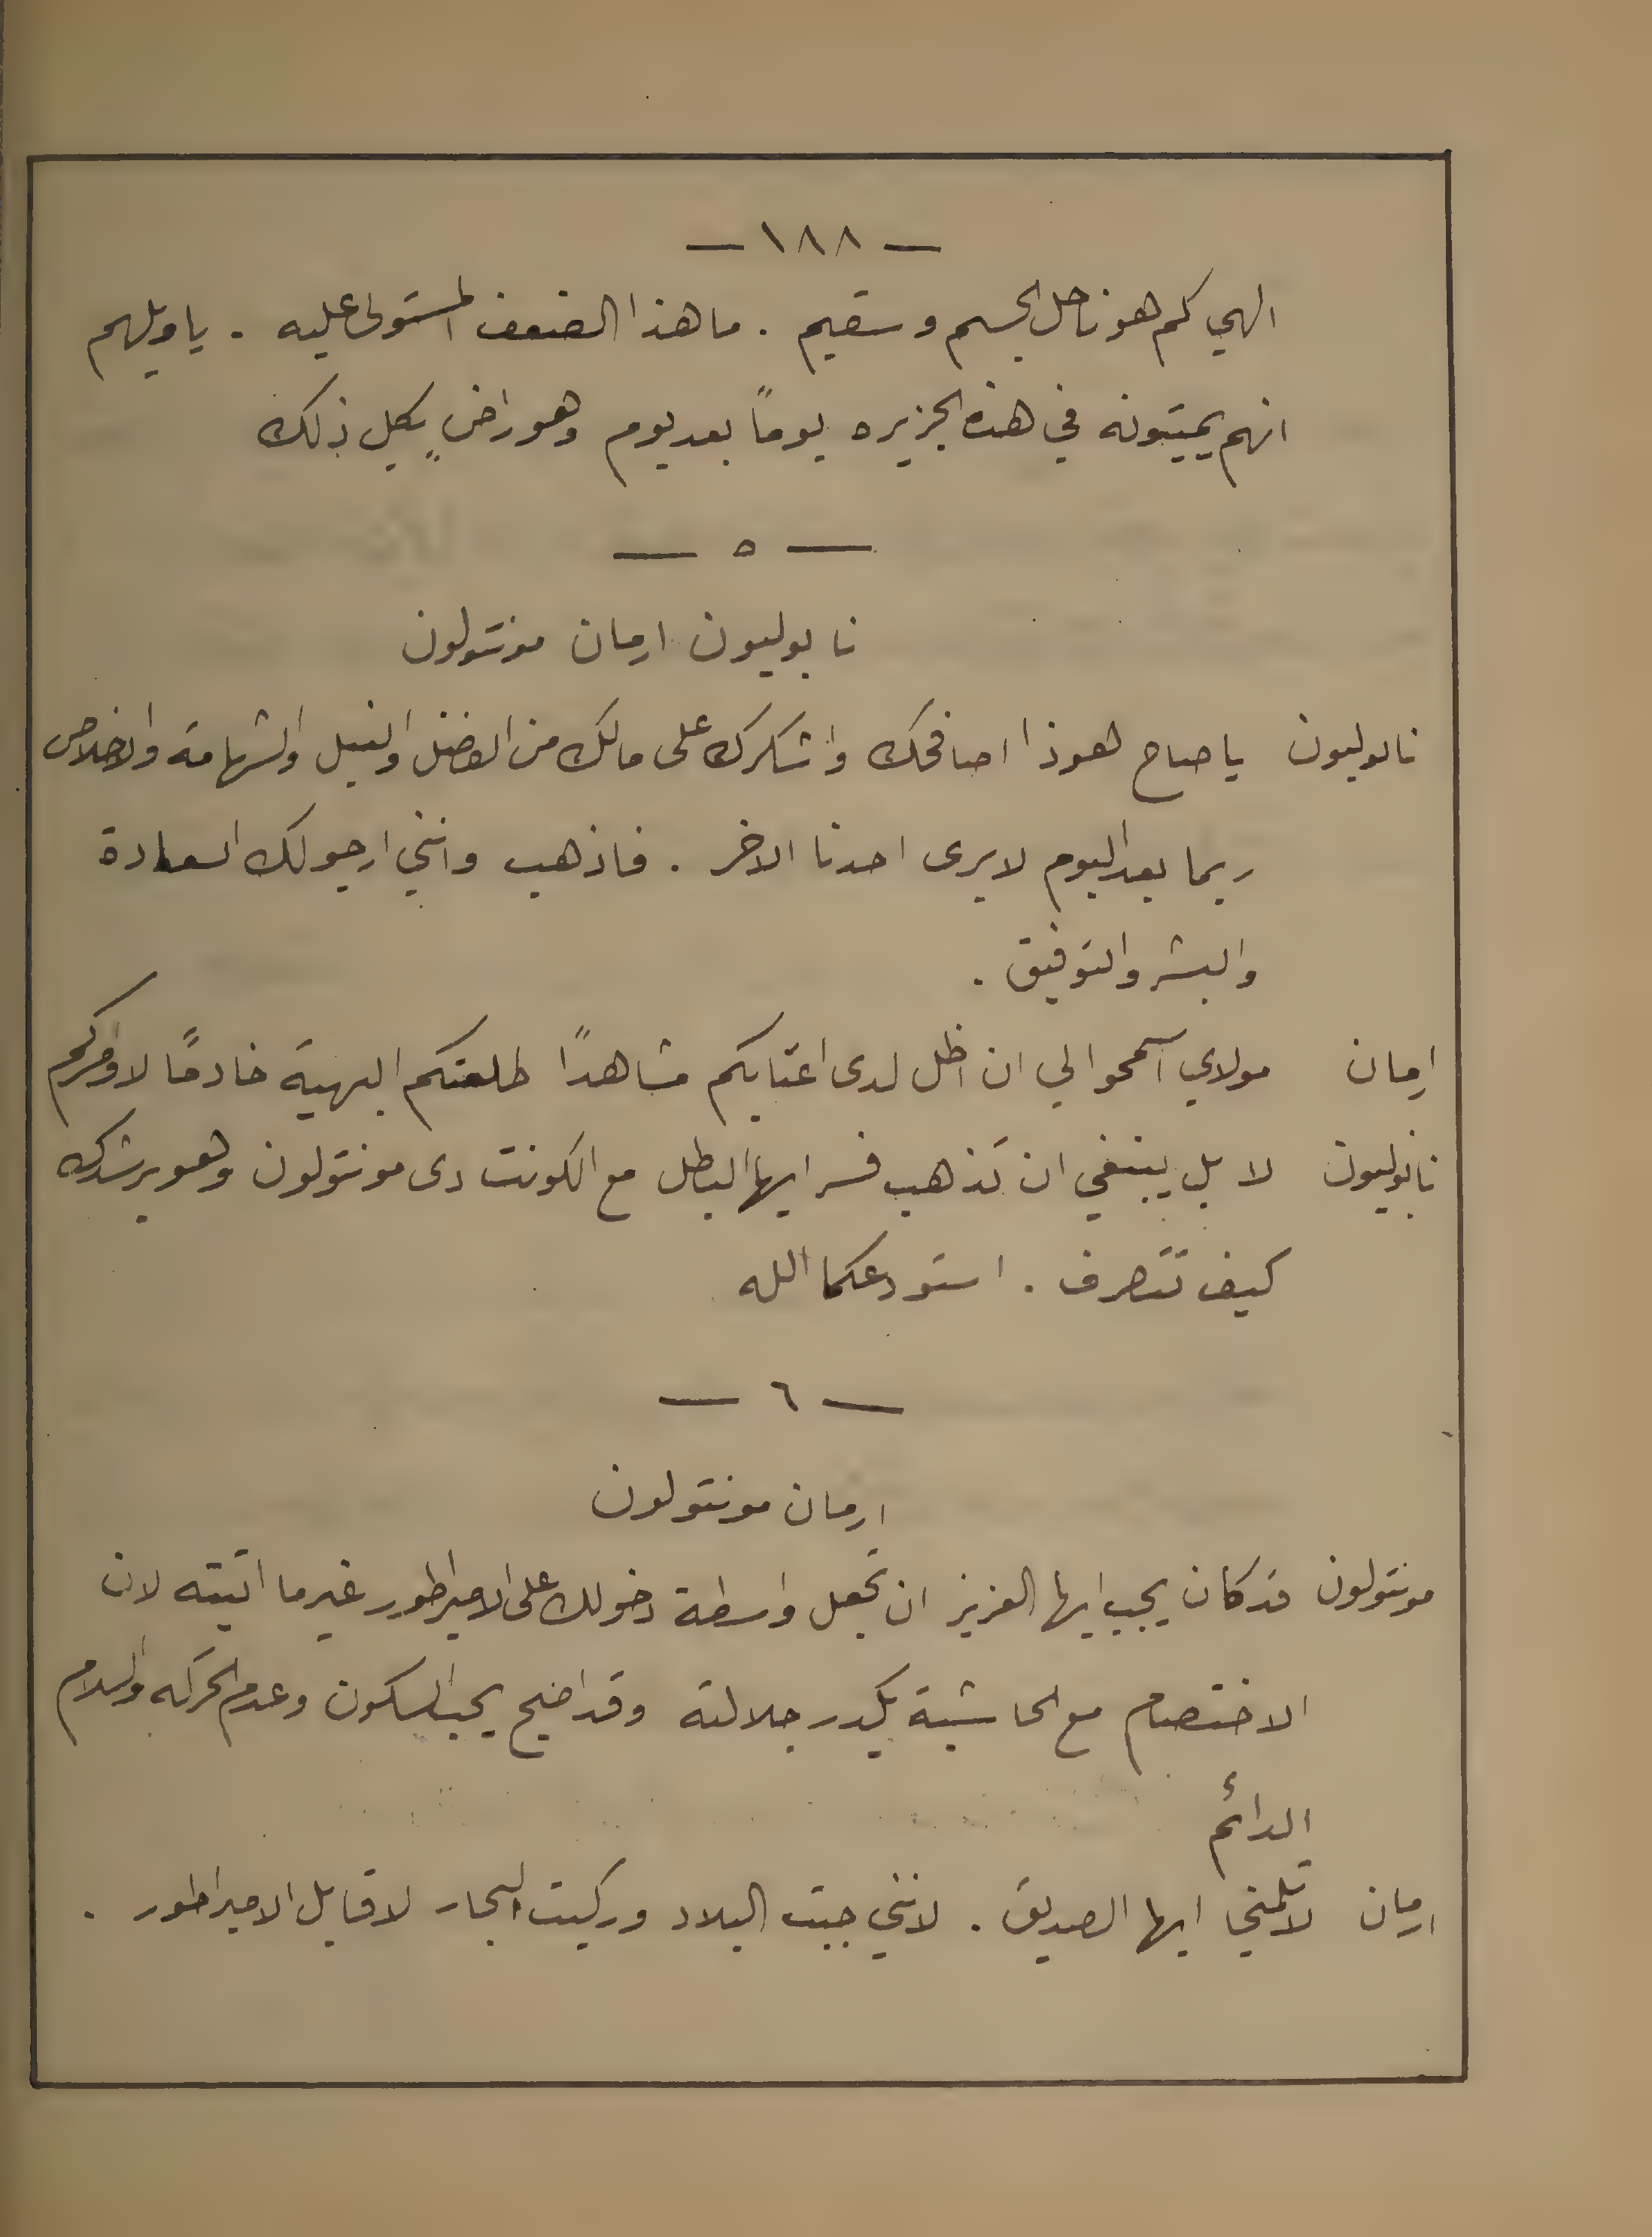 — ١٨٨ —
الهي كم هو ناحل الجسم وسقيم . ما هذا الضعف المستولى عليه . يا ويلهم
انهم يميتونه في هذه الجزيره يوماً بعد يوم وهو راضٍ بكل ذلك
— ٥ —
نابوليون ارمان مونتولون
نابوليون يا صاح هوذا اصافحك واشكرك على مالك من الفضل والنبل والشهامة والاخلاص
ربما بعد اليوم لا يرى احدنا الاخر . فاذهب وانني ارجو لك السعادة
والبشر والتوفيق .
ارمان مولاي اسمحوا لي ان اظل لدى اعتابكم مشاهدًا طلعتكم البهية خادمًا لاوامركم
نابوليون لا بل ينبغي ان تذهب فسر ايها البطل مع الكونت دى مونتولون وهو يرشدك
كيف تتصرف . استودعكما الله
— ٦ —
ارمان مونتولون
مونتولون قد كان يجب ايها العزيز ان تجعل واسطة دخولك على الامبراطور غير ما اتيته لان
الاختصام مع الحاشية يكدر جلالته وقد اضحى يحب السكون وعدم الحركه والسلام
الدائم
ارمان لا تلمني ايها الصديق . لانني جبت البلاد وركبت البحار لاقابل الامبراطور .